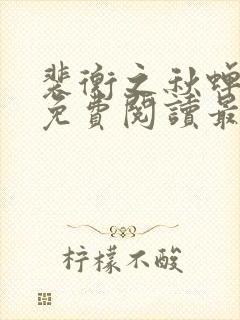 裴衡之秋蝉
免費閱讀最
柠檬不酸